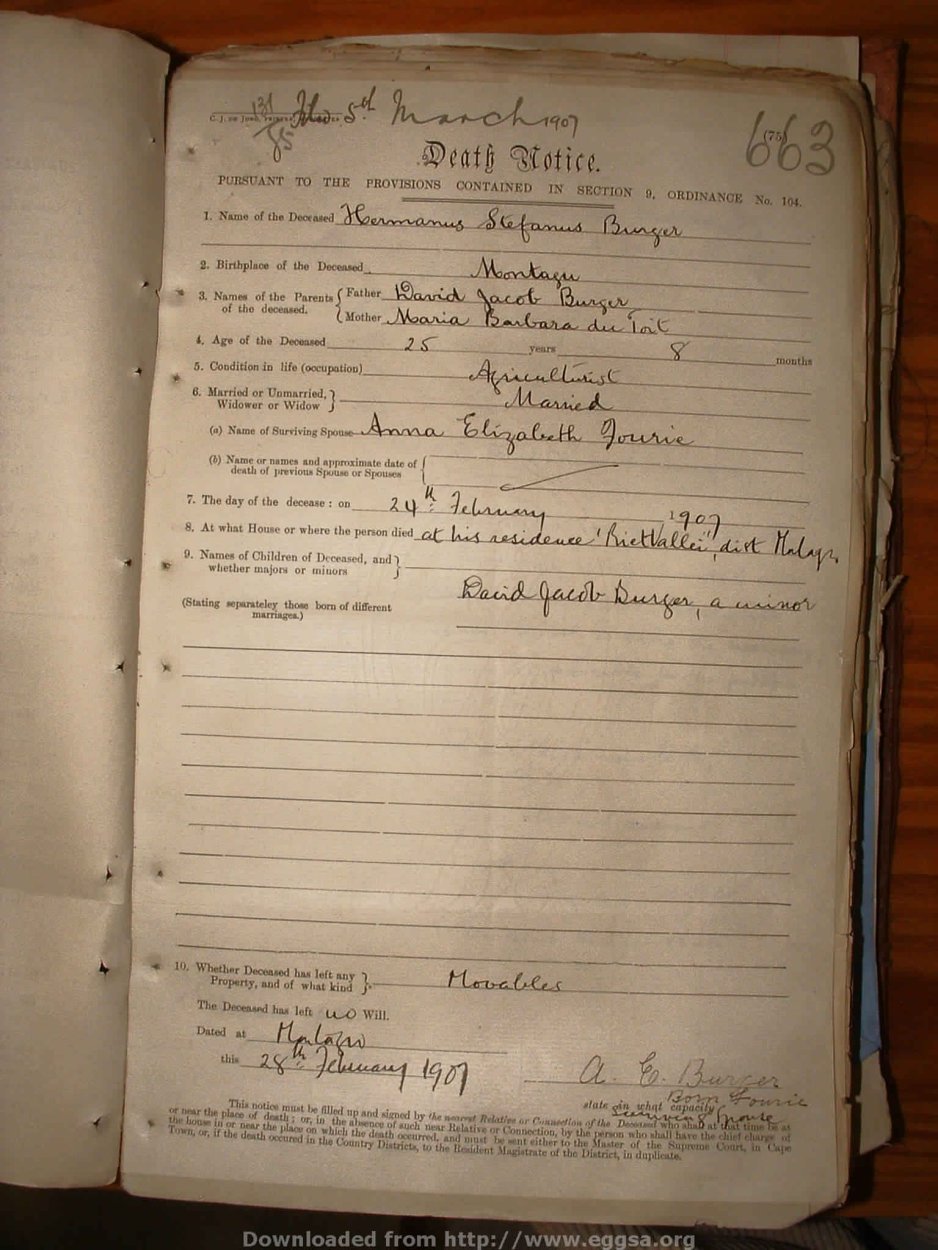 131/85 5th March 1907
C. J. DE JONG,
663
(75)
Death Notice.
PURSUANT TO THE PROVISIONS CONTAINED IN SECTION 9, ORDINANCE No. 104.
1. Name of the Deceased Hermanus Stefanus Burger
2. Birthplace of the Deceased Montagu
3. Names of the Parents of the deceased. { Father David Jacob Burger
Mother Maria Barbara du Toit
4. Age of the Deceased 25 years 8 months
5. Condition in life (occupation) Agriculturist
6. Married or Unmarried, Widower or Widow } Married
(a) Name of Surviving Spouse Anna Elizabeth Fourie
(b) Name or names and approximate date of death of previous Spouse or Spouses {
7. The day of the decease : on 24th February 1907
8. At what House or where the person died at his residence 'RietVallei', dist
9. Names of Children of Deceased, and whether majors or minors }
David Jacob Burger, a minor
(Stating separateley those born of different marriages.)
10. Whether Deceased has left any Property, and of what kind } Movables
The Deceased has left no Will.
Dated at Montagu
this 28th February 1907
A. E. Burger
Born Fourie
state in what capacity
Surviving Spouse
This notice must be filled up and signed by the nearest Relative or Connection of the Deceased who shall at that time be at
or near the place of death ; or, in the absence of such near Relative or Connection, by the person who shall have the chief charge of
the house in or near the place on which the death occurred, and must be sent either to the Master of the Supreme Court, in Cape
Town, or, if the death occured in the Country Districts, to the Resident Magistrate of the District, in duplicate.
Downloaded from http://www.eggsa.org